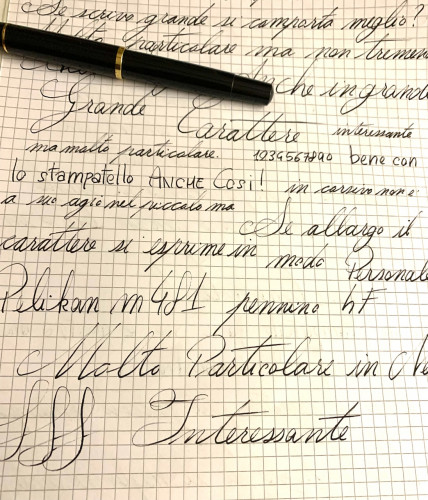 Se scrivo grande si comporta meglio?
Molto particolare ma non tremend
Anche in grande
Grande Carattere interessante
ma molto particolare. 1234567890 bene con
lo stampatello ANCHE COSÌ! in corsivo non è
a suo agio nel piccolo ma
Se allargo il
carattere si esprime in modo Personale
Pelikan m 481 pennino hF
Molto Particolare in
fff Interessante